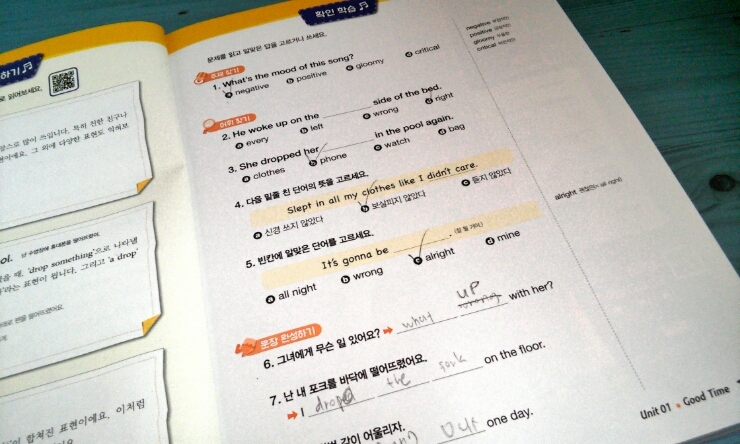 하기
로 읽어보세요.
확인 학습
문제를 읽고 알맞은 답을 고르거나 쓰세요.
주제 찾기
1. What's the mood of this song?
a negative b positive c gloomy d critical
어휘 찾기
2. He woke up on the ______ side of the bed.
a every b left c wrong d right
3. She dropped her ______ in the pool again.
a clothes b phone c watch d bag
4. 다음 밑줄 친 단어의 뜻을 고르세요.
Slept in all my clothes like I didn't care.
a 신경 쓰지 않았다 b 보살피지 않았다 c 듣지 않았다
5. 빈칸에 알맞은 단어를 고르세요.
It's gonna be ______. (잘 될 거야)
a all night b wrong c alright d mine
문장 완성하기
6. 그녀에게 무슨 일 있어요? ➡ what UP with her?
7. 난 내 포크를 바닥에 떨어뜨렸어요.
➡ I droped the fork on the floor.
같이 어울리자.
out one day.
negative 부정적인
positive 긍정적인
gloomy 우울한
critical 비판적인
alright 괜찮은(= all right)
Unit 01 • Good Time
장스로 많이 쓰입니다. 특히 친한 친구나
현이에요. 그 외에 다양한 표현도 익혀보
ol. 난 수영장에 휴대폰을 떨어뜨렸어.
을 때, 'drop something'으로 나타낼
'라는 표현이 됩니다. 그리고 'a drop
이 합쳐진 표현이에요. 이처럼